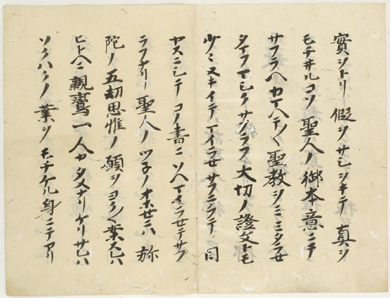 實ヲトリ假ヲサシヲキテ真ヲ
モチヰルコソ聖人ノ御本意ニテ
サフラヘカマヘテ〳〵聖教ヲミミタラセ
タマフマシクサフラフ大切ノ證文トモ
少々ヌキイテマイラセサフラフテ目
ヤスニシテコノ書ニソヘマイラセテサフ
ラフナリ聖人ノツネノオホセニハ弥
陀ノ五劫思惟ノ願ヲヨク〳〵案スレハ
ヒトヘニ親鸞一人カタメナリケリサレハ
ソクハクノ業ヲモチケル身ニテアリ